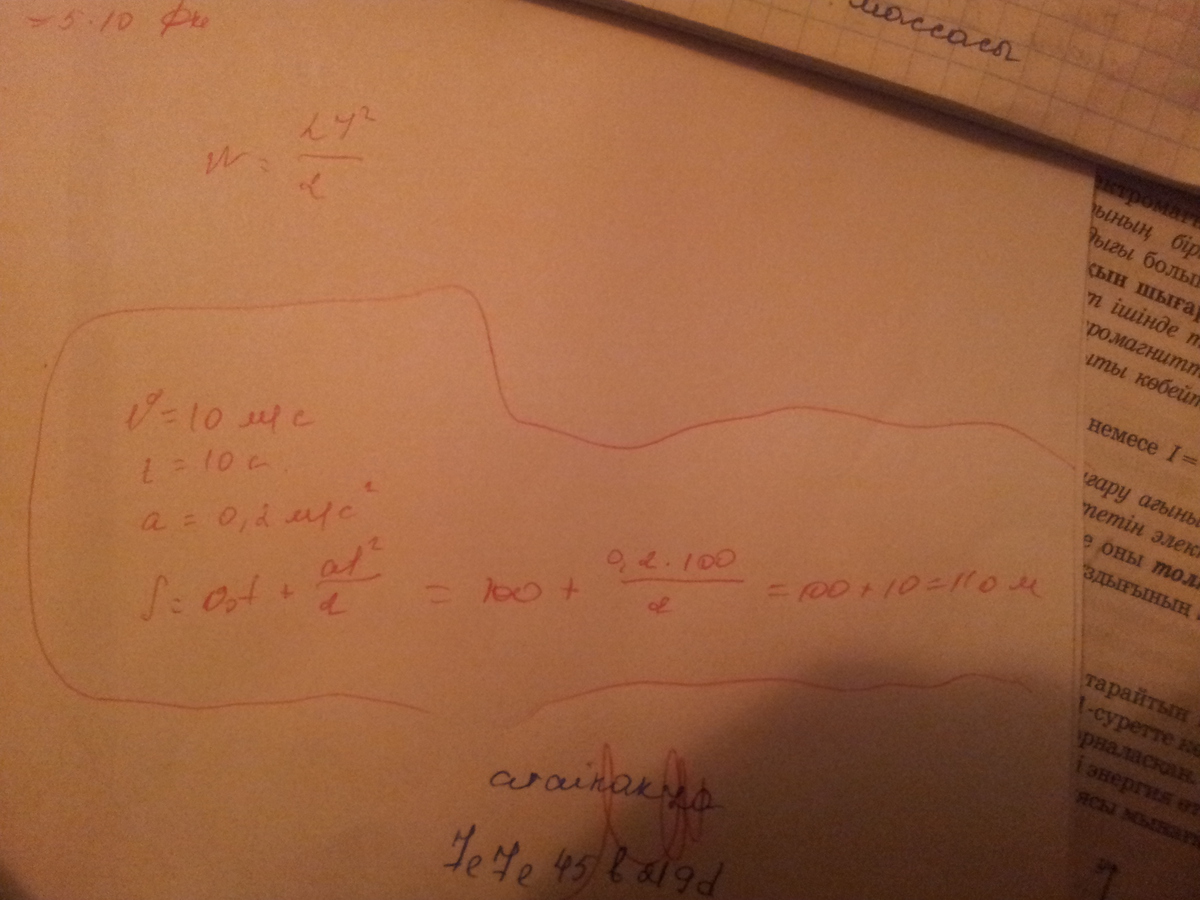 = 5·10
массасы
W = LI²/2
V = 10 м/с
t = 10 с.
a = 0,2 м/с²
S = v₀t + at²/2 = 100 + 0,2·100/2 = 100 + 10 = 110 м
7e7e 45
ының бір
дығы болы
қын шығар
т ішінде т
ромагнитт
ты көбейт
немесе I =
ғару ағыны
тетін элек
е оны тол
ұздығының
тарайтын
1-суретте к
орналасқан.
і энергия өт
ясы мынаған